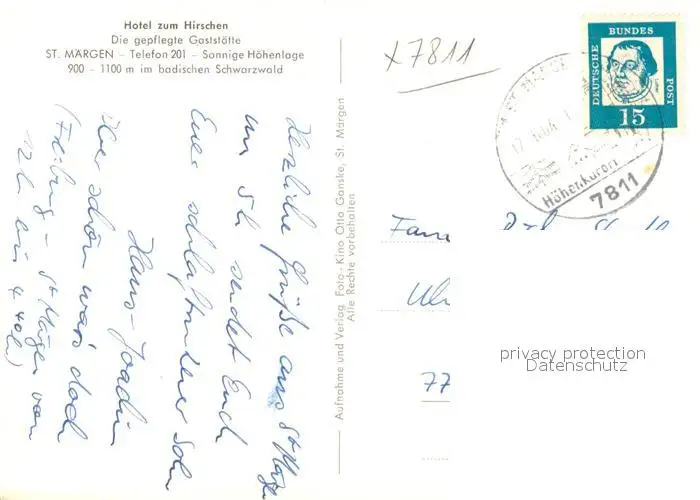 Hotel zum Hirschen
Die gepflegte Gaststätte
ST. MÄRGEN – Telefon 201 – Sonnige Höhenlage
900 – 1100 m im badischen Schwarzwald
x7811
DEUTSCHE BUNDES POST
15
Höhenkurort
7811
Herzliche Grüße aus St. Märgen
um 5h sendet Euch
Euer schlaftrunkener Sohn
Hans-Joachim
Aber schön war's doch
(Freiburg – St. Märgen von
12h bis 4 40h)
Aufnahme und Verlag Foto-Kino Otto Ganske, St. Märgen
Alle Rechte vorbehalten
Fam
77
privacy protection
Datenschutz